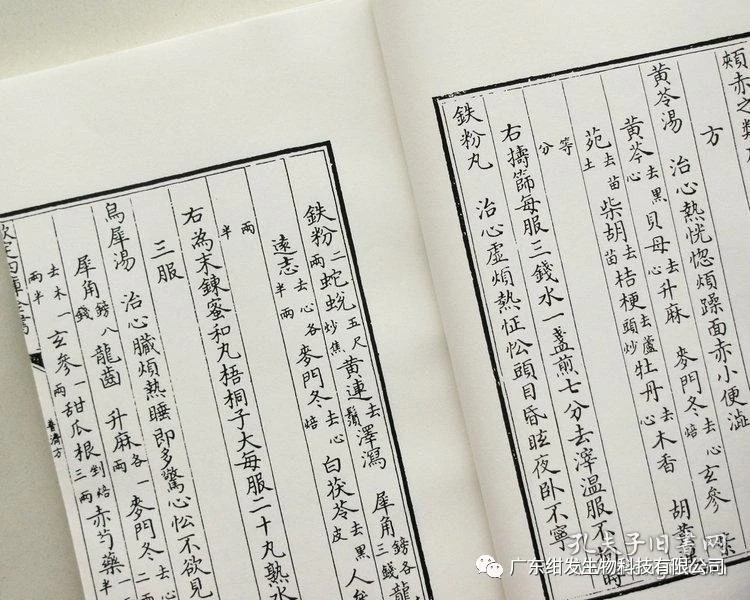 頰赤之類
方
黃芩湯 治心熱恍惚煩躁面赤小便澁
黃芩去黑心 貝母去心 升麻 麥門冬去心焙 玄參 紫
苑去苗土 柴胡去苗 桔梗去蘆頭炒 牡丹去心 木香 胡黃連
等分
右擣篩每服三錢水一盞煎七分去滓溫服不拘時
鉄粉丸 治心虛煩熱怔忪頭目昏眩夜卧不寧
鉄粉二兩 蛇蛻五尺炒焦 黃連去鬚 澤瀉 犀角鎊各三錢 龍
遠志去心各半兩 麥門冬去心焙 白茯苓去黑皮 人參
兩半
右為末鍊蜜和丸梧桐子大每服二十丸熟水
三服
烏犀湯 治心臟煩熱睡即多驚心忪不欲見
犀角鎊八錢 龍齒 升麻各一兩 麥門冬二兩
去木一兩半 玄參一兩 甜瓜根剉焙三兩 赤芍藥一半
欽定四庫全書
普濟方
孔夫子旧書网
广东绀发生物科技有限公司